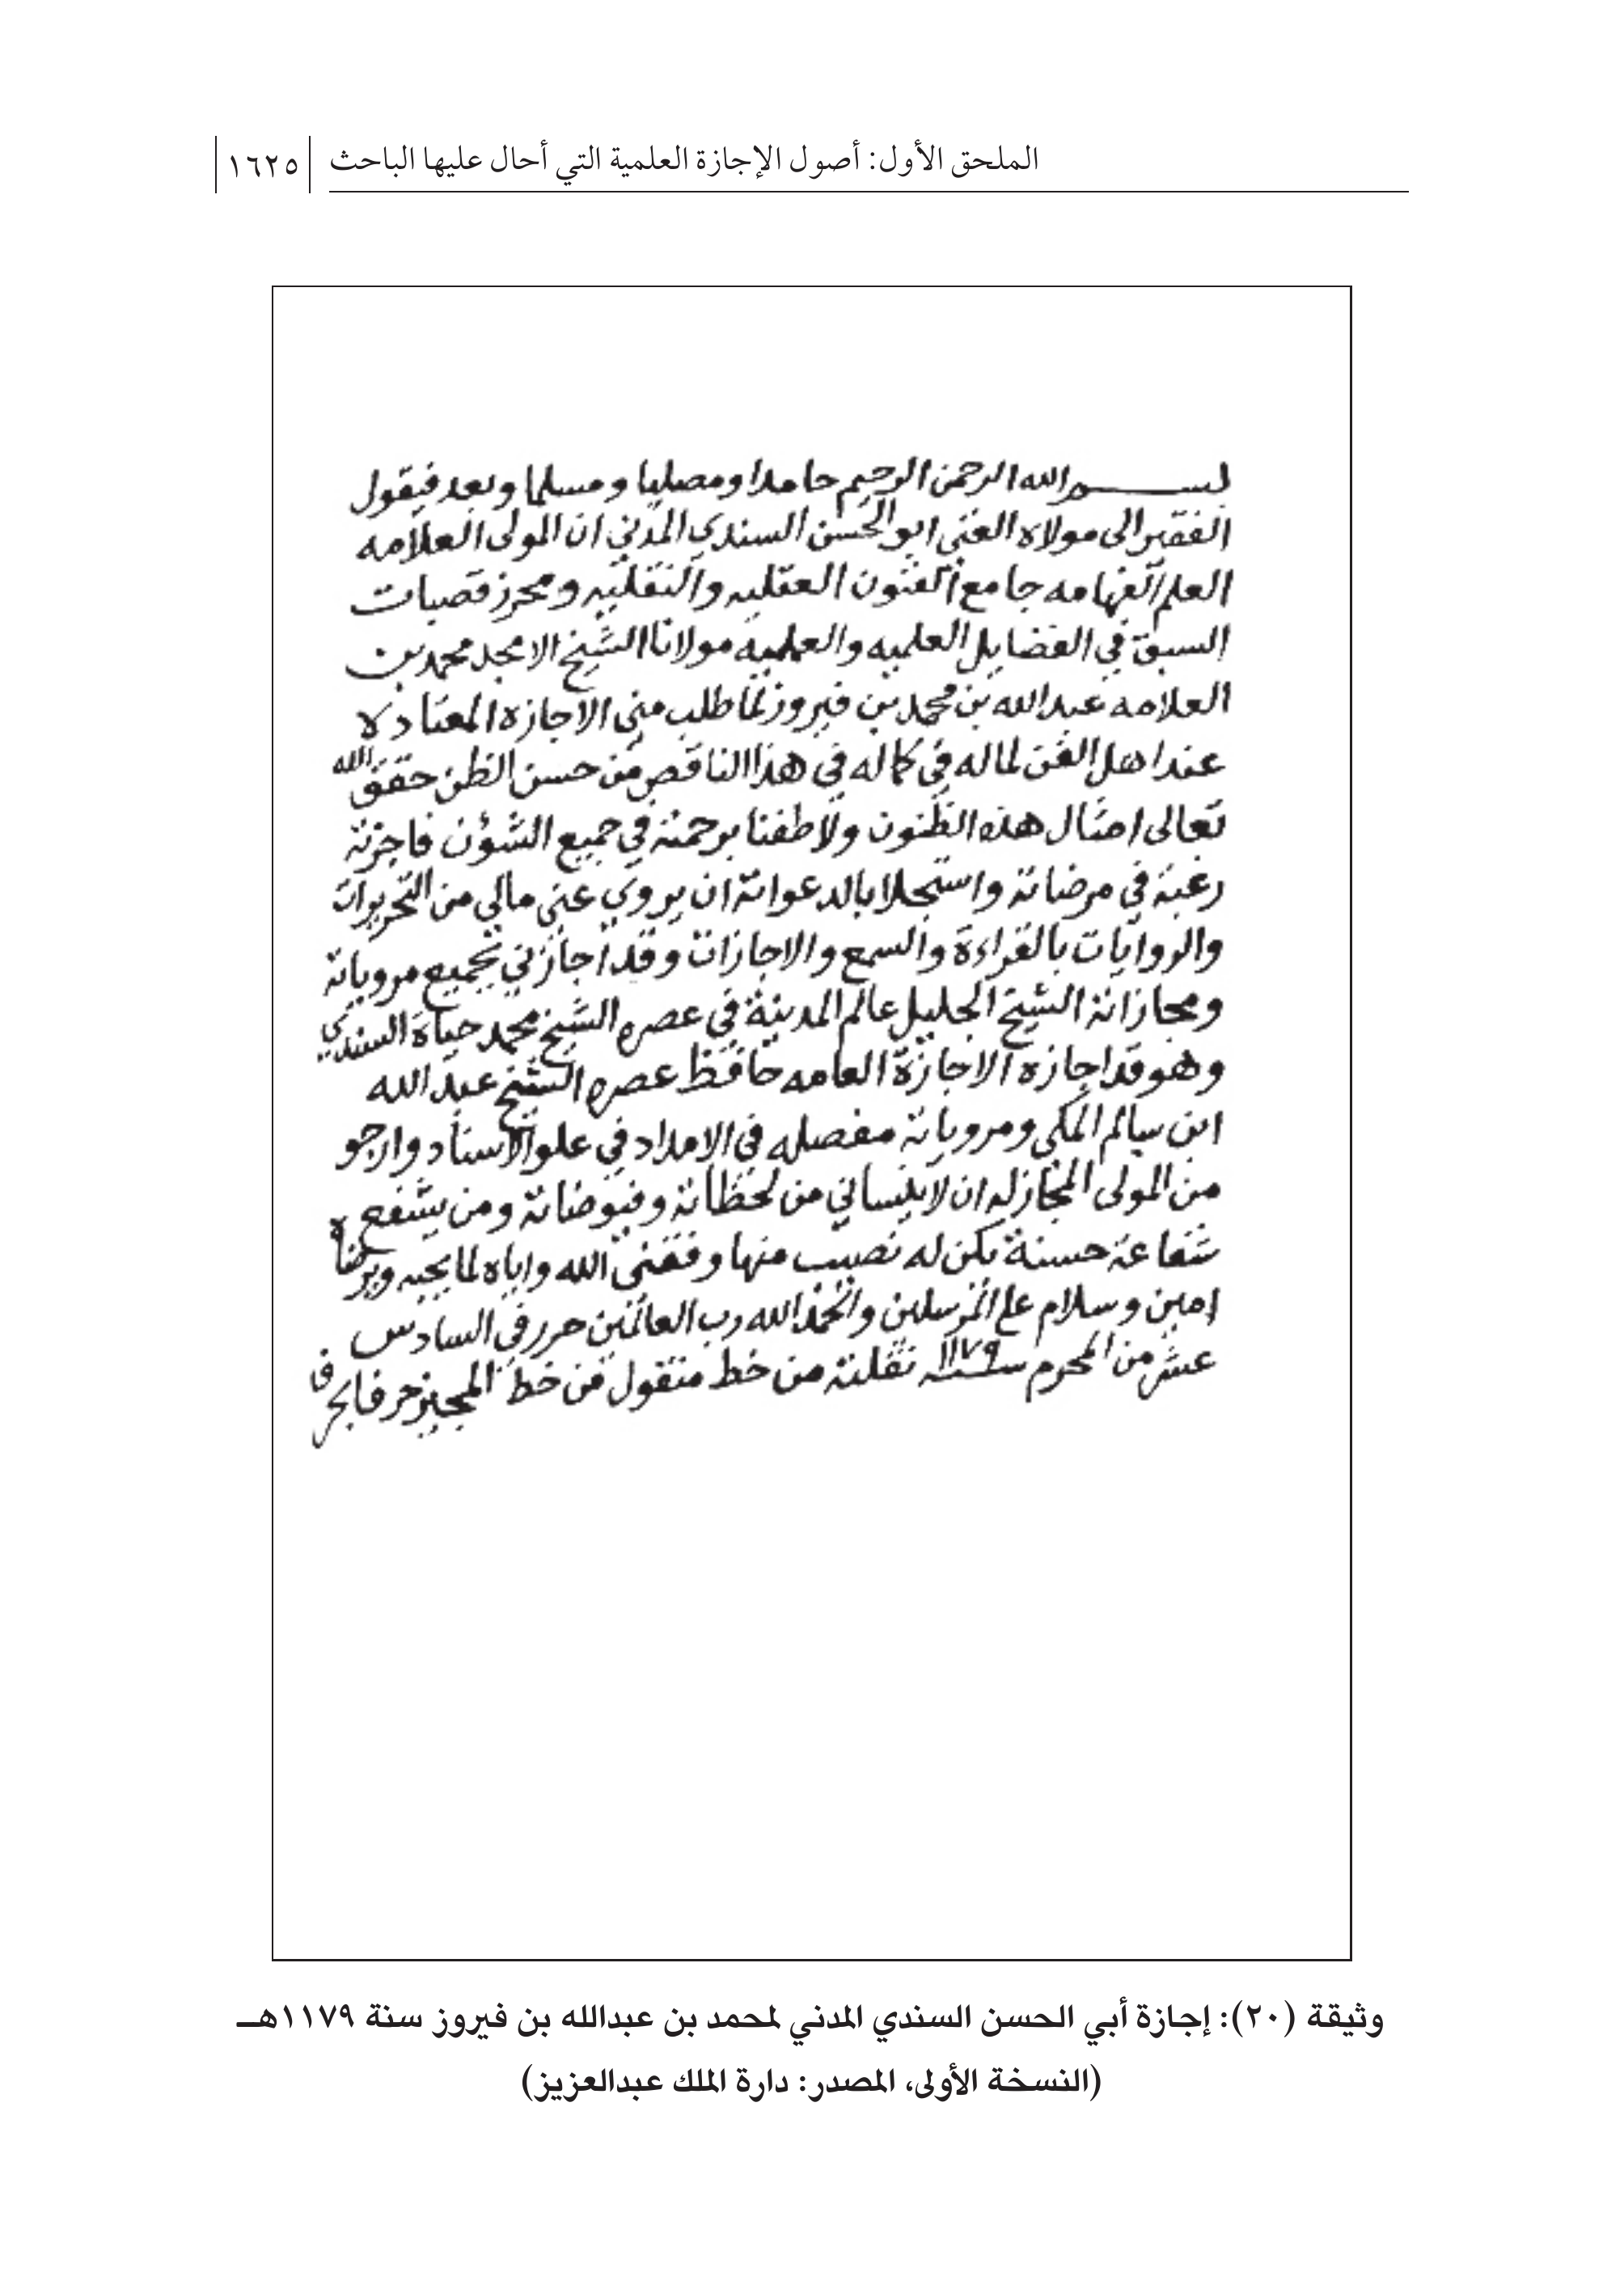 الملحق الأول: أصول الإجازة العلمية التي أحال عليها الباحث ١٦٢٥
بسم الله الرحمن الرحيم حامدا ومصليا ومسلما وبعد فيقول
الفقير الى مولاه الغني ابو الحسن السندي المدني ان المولى العلامه
العلم الفهامه جامع الفنون العقليه والنقليه ومحرز قصبات
السبق في الفضايل العلميه والعمليه مولانا الشيخ الامجد محمد بن
العلامه عبدالله بن محمد بن فيروز لما طلب مني الاجازه المعتاده
عند اهل الفن لماله في كماله في هذا الناقص من حسن الظن حقق الله
تعالى امثال هذه الظنون ولاطفنا برحمته في جميع الشؤن فاجزته
رغبة في مرضاته واستجلابا لدعواته ان يروي عني مالي من التحريرات
والروايات بالقراءة والسمع والاجازات وقد اجازني بجميع مروياته
ومجازاته الشيخ الجليل عالم المدينة في عصره الشيخ محمد حياة السندي
وهو قد اجازه الاجازة العامه حافظ عصره الشيخ عبد الله
ابن سالم المكي ومروياته مفصله في الامداد في علو الاسناد وارجو
من المولى المجاز له ان لا ينساني من لحظاته وفيوضاته ومن يشفع
شفاعة حسنة يكن له نصيب منها وفقني الله واياه لما يحبه ويرضاه
امين وسلام على المرسلين والحمد لله رب العالمين حرر في السادس
عشر من المحرم سنة ١١٧٩ نقلته من خط منقول من خط المجيز حرفا بحرف
وثيقة (٢٠): إجازة أبي الحسن السندي المدني لمحمد بن عبدالله بن فيروز سنة ١١٧٩هـ
(النسخة الأولى، المصدر: دارة الملك عبدالعزيز)